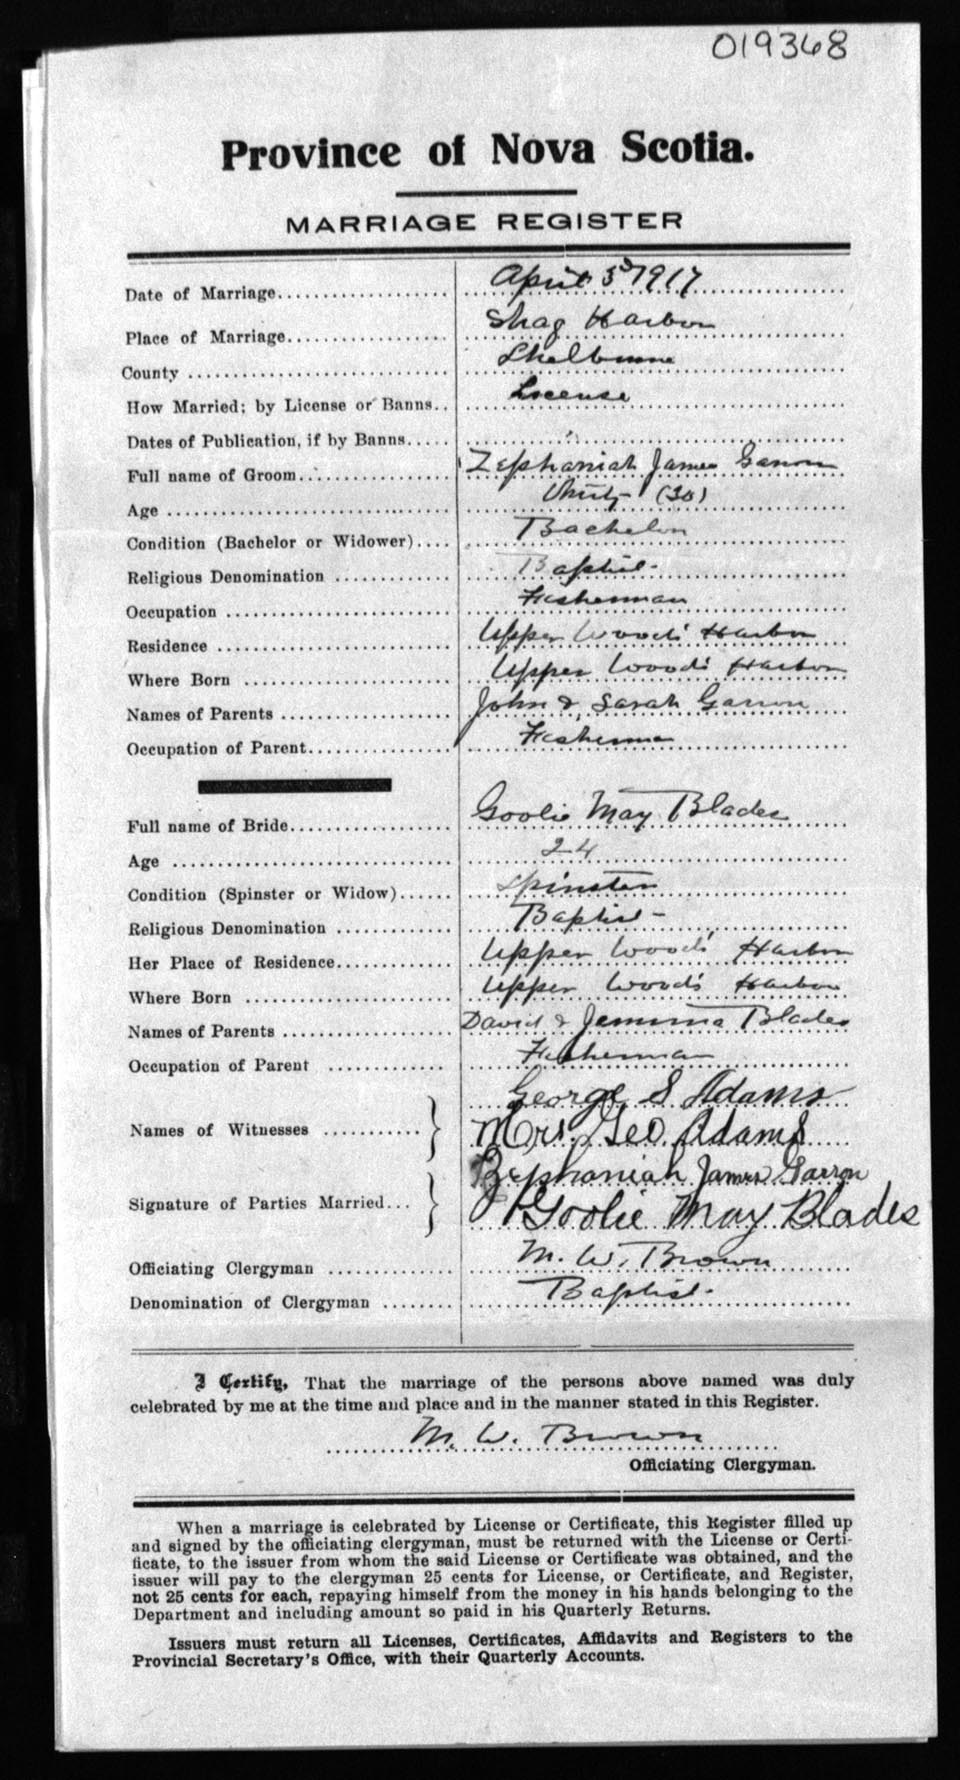 019368
Province of Nova Scotia.
MARRIAGE REGISTER
Date of Marriage.................... April 3d 1917
Place of Marriage................... Shag Harbor
County .............................. Shelburne
How Married; by License or Banns.. License
Dates of Publication, if by Banns.....
Full name of Groom.................. Zephaniah James Garron
Age .................................. Thirty (30)
Condition (Bachelor or Widower).... Bachelor
Religious Denomination .............. Baptist
Occupation ........................... Fisherman
Residence ............................ Upper Woods' Harbor
Where Born .......................... Upper Wood's Harbor
Names of Parents .................... John & Sarah Garron
Occupation of Parent................. Fisherman
Full name of Bride................... Goolie May Blades
Age .................................. 24
Condition (Spinster or Widow)...... Spinster
Religious Denomination .............. Baptist
Her Place of Residence.............. Upper Woods' Harbor
Where Born .......................... Upper Wood's Harbor
Names of Parents .................... David & Jemima Blades
Occupation of Parent .............. Fisherman
George S Adams
Names of Witnesses ........... } Mrs. Geo Adams
Zephaniah James Garron
Signature of Parties Married... } Goolie May Blades
Officiating Clergyman ............... M. W. Brown
Denomination of Clergyman ........ Baptist
I Certify, That the marriage of the persons above named was duly
celebrated by me at the time and place and in the manner stated in this Register.
M. W. Brown
Officiating Clergyman.
When a marriage is celebrated by License or Certificate, this Register filled up
and signed by the officiating clergyman, must be returned with the License or Certi-
ficate, to the issuer from whom the said License or Certificate was obtained, and the
issuer will pay to the clergyman 25 cents for License, or Certificate, and Register,
not 25 cents for each, repaying himself from the money in his hands belonging to the
Department and including amount so paid in his Quarterly Returns.
Issuers must return all Licenses, Certificates, Affidavits and Registers to the
Provincial Secretary's Office, with their Quarterly Accounts.